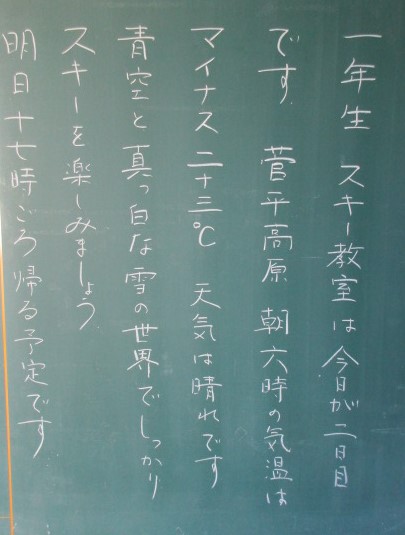 一年生 スキー教室は今日が二日目
です 菅平高原 朝六時の気温は
マイナス二十三℃ 天気は晴れです
青空と真っ白な雪の世界でしっかり
スキーを楽しみましょう
明日十七時ごろ帰る予定です